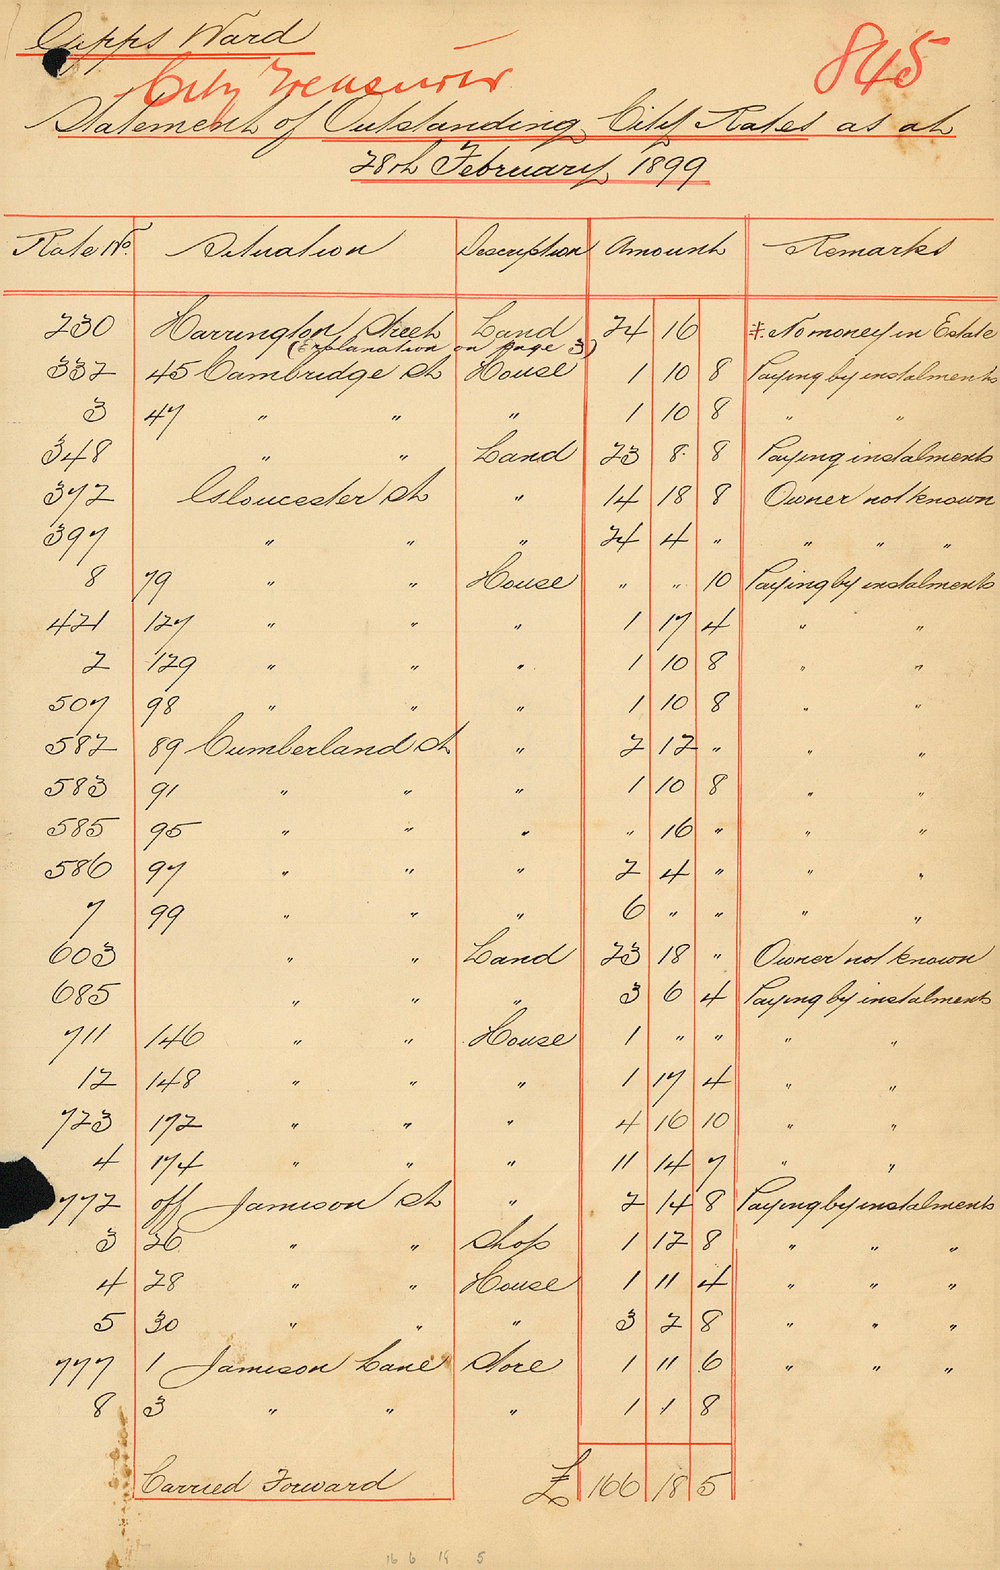 Gipps Ward
845
City Treasurer
Statement of Outstanding City Rates as at
28th February 1899
Rate No. Situation Description Amount Remarks
230 Harrington Street Land 24 16 ⁂ No money in Estate
(Explanation on page 3)
332 45 Cambridge St House 1 10 8 Paying by instalments
3 47 " " " 1 10 8 " "
348 " " Land 23 8 8 Paying instalments
372 Gloucester St " 14 18 8 Owner not known
397 " " " 24 4 " " " "
8 79 " " House " " 10 Paying by instalments
421 127 " " " 1 17 4 " "
2 129 " " " 1 10 8 " "
507 98 " " " 1 10 8 " "
582 89 Cumberland St " 2 12 " " "
583 91 " " " 1 10 8 " "
585 95 " " " " 16 " " "
586 97 " " " 2 4 " " "
7 99 " " " 6 " " " "
603 " " Land 23 18 " Owner not known
685 " " " 3 6 4 Paying by instalments
711 146 " " House 1 " " " "
12 148 " " " 1 17 4 " "
723 172 " " " 4 16 10 " "
4 174 " " " 11 14 7 " "
772 off Jamison St " 2 14 8 Paying by instalments
3 26 " " Shop 1 12 8 " " "
4 28 " " House 1 11 4 " " "
5 30 " " " 3 2 8 " " "
777 1 Jamison Lane Store 1 11 6 " " "
8 3 " " " 1 1 8
Carried Forward £ 166 18 5
166 18 5